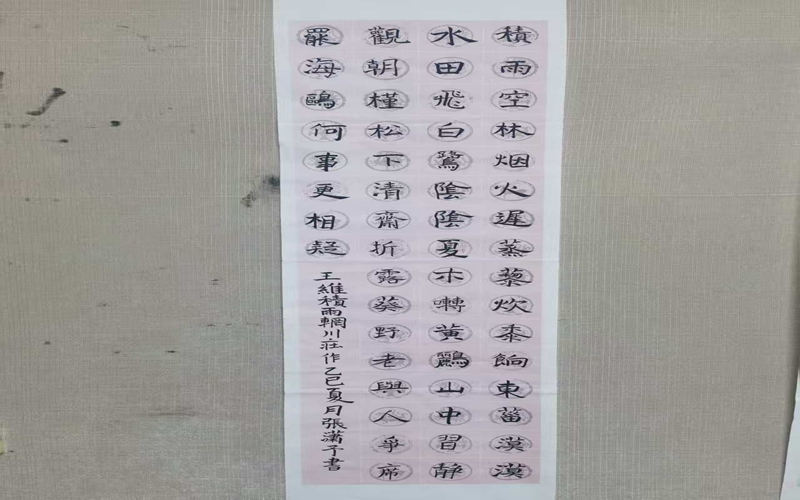 積雨空林烟火遲蒸藜炊黍餉東菑漠漠
水田飛白鷺陰陰夏木囀黃鸝山中習靜
觀朝槿松下清齋折露葵野老與人爭席
罷海鷗何事更相疑
王維積雨輞川莊作乙巳夏月張瀟予書